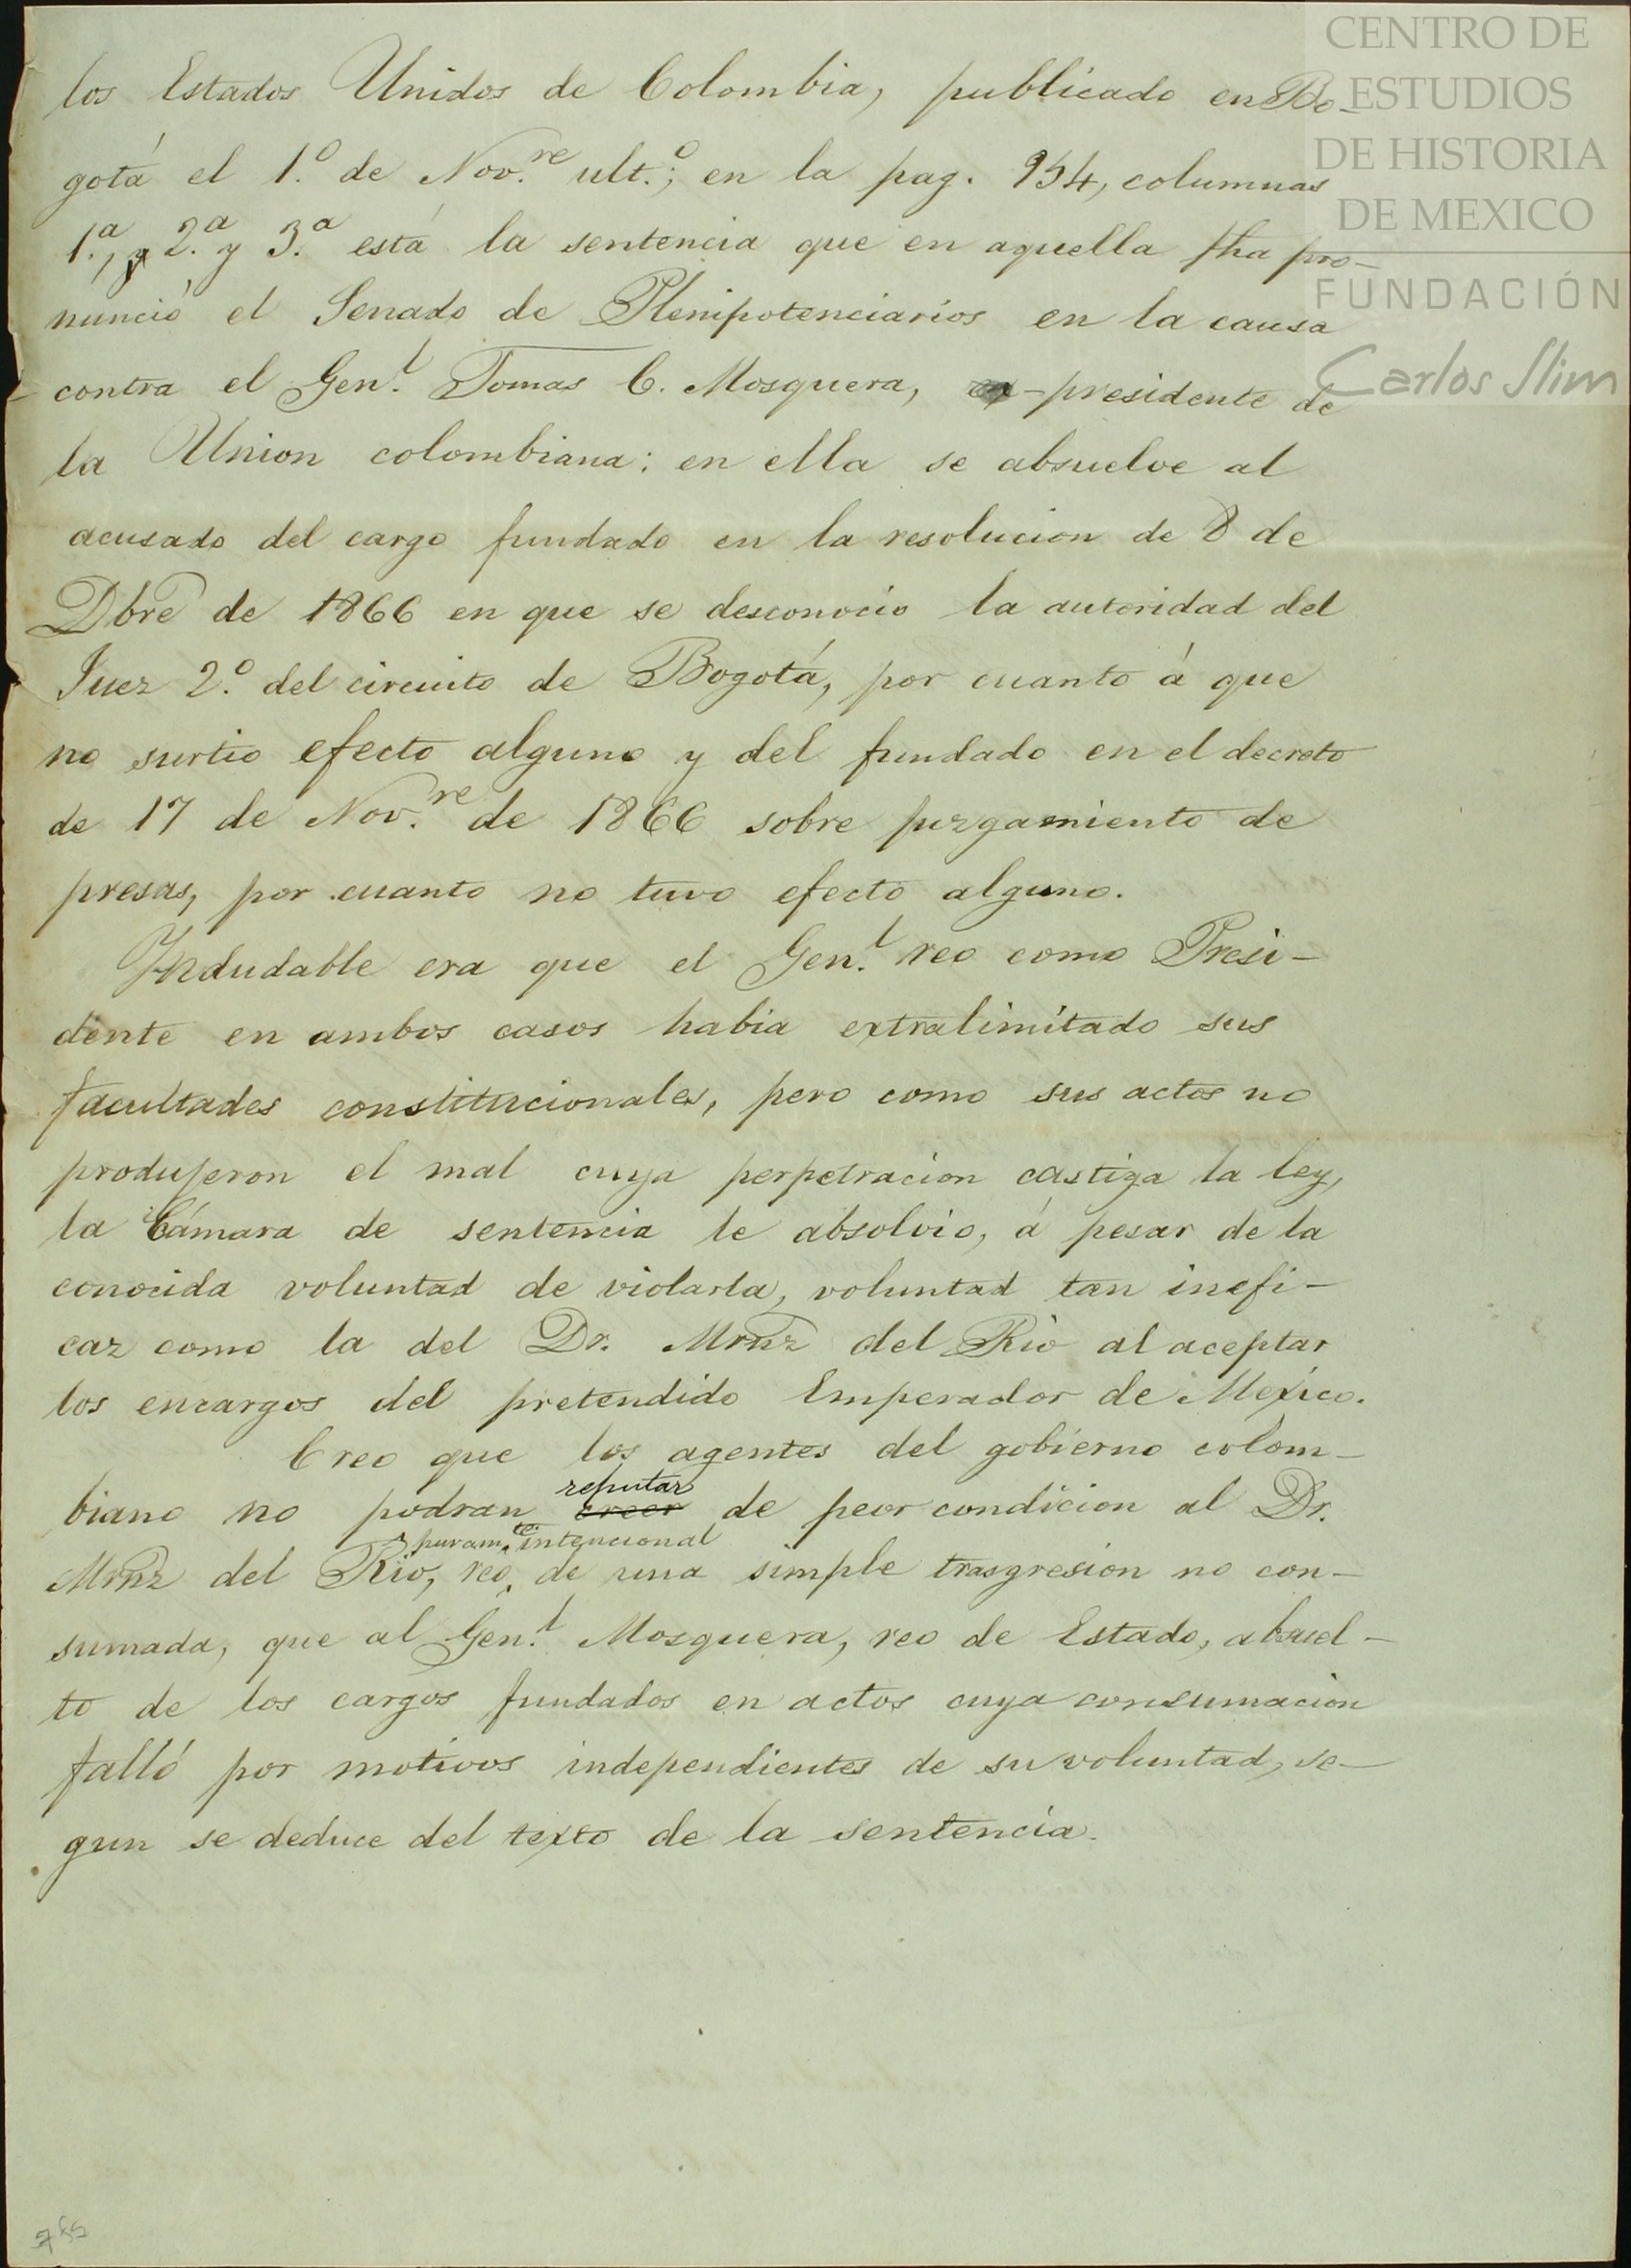 CENTRO DE
ESTUDIOS
DE HISTORIA
DE MEXICO
FUNDACIÓN
Carlos Slim
los Estados Unidos de Colombia, publicado en Bo-
gotá el 1.º de Nov.re ult.º; en la pag. 954, columnas
1.ª, y 2.ª y 3.ª está la sentencia que en aquella fha pro-
nunció el Senado de Plenipotenciarios en la causa
contra el Gen.l Tomas C. Mosquera, ex-presidente de
la Union colombiana: en ella se absuelve al
acusado del cargo fundado en la resolucion de 8 de
Dbre de 1866 en que se desconocio la autoridad del
Juez 2.º del circuito de Bogotá, por cuanto á que
no surtio efecto alguno y del fundado en el decreto
de 17 de Nov.re de 1866 sobre juzgamiento de
presas, por cuanto no tuvo efecto alguno.
Indudable era que el Gen.l reo como Presi-
dente en ambos casos habia extralimitado sus
facultades constitucionales, pero como sus actos no
produjeron el mal cuya perpetracion castiga la ley,
la Cámara de sentencia le absolvio, á pesar de la
conocida voluntad de violarla, voluntad tan inefi-
caz como la del Dr. Mrnz del Rio al aceptar
los encargos del pretendido Emperador de Mexico.
Creo que los agentes del gobierno colom-
biano no podran creer reputar de peor condicion al Dr.
Mrnz del Rio, reo puram.te intencional de una simple trasgresion no con-
sumada, que al Gen.l Mosquera, reo de Estado, absuel-
to de los cargos fundados en actos cuya consumacion
falló por motivos independientes de su voluntad, se-
gun se deduce del texto de la sentencia.